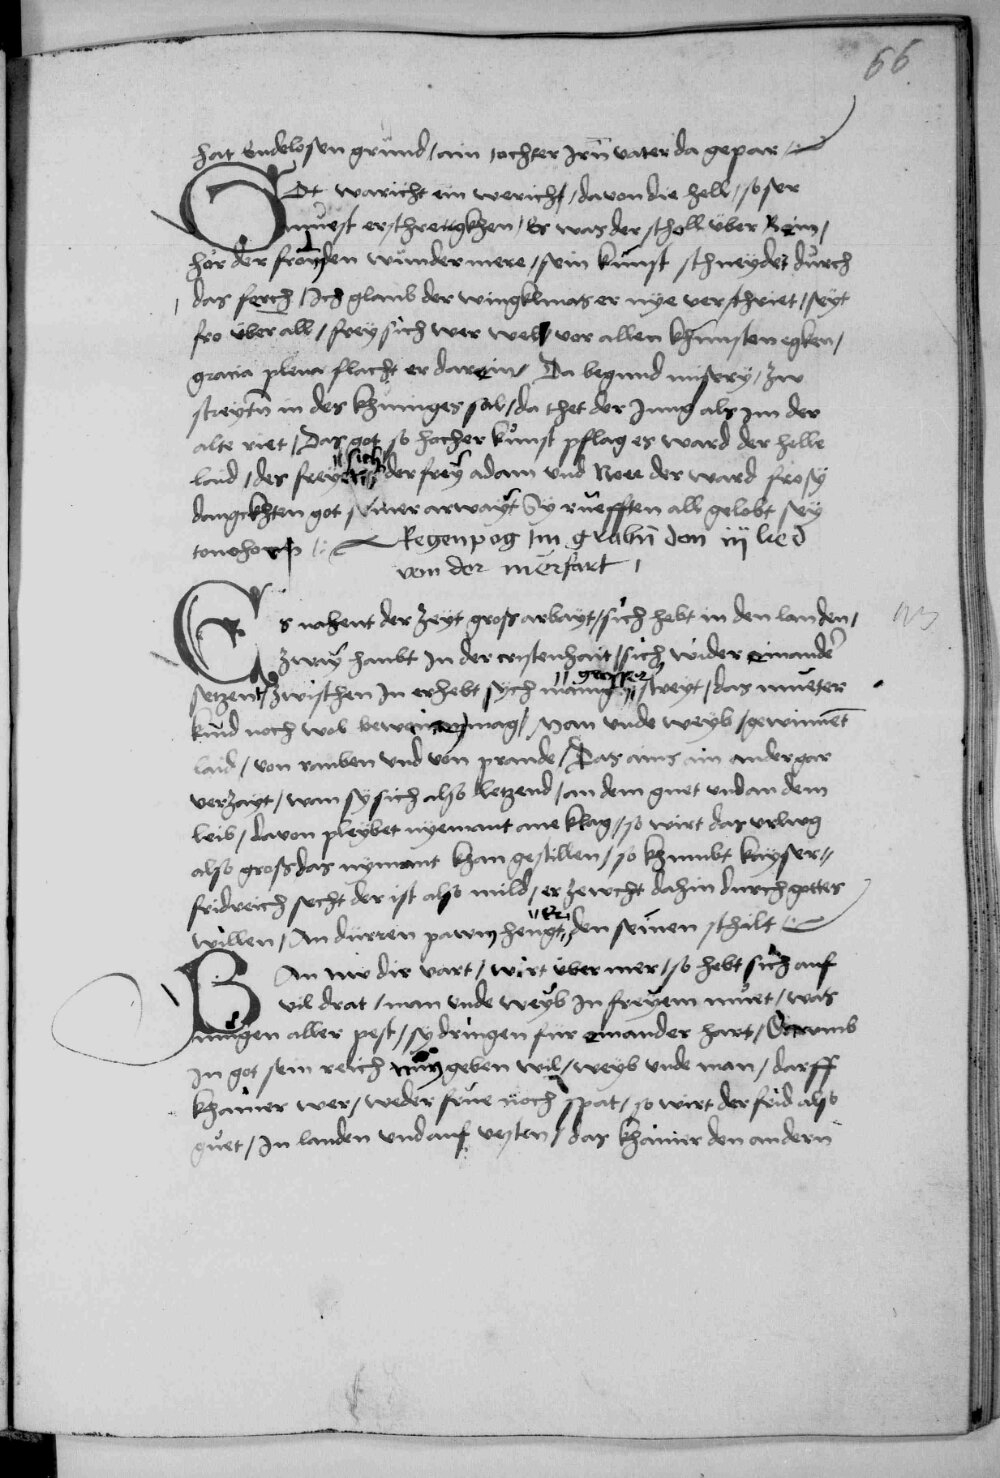 66
hat Endelosen grund / ain tochter Jrn̄ vater da gepar /
Got waricht ein wericht / davon die hell / so ser
muest erschregkhen / Es was der schell über Rein /
hör der fronden wunder mere / sein kunst schneydet durch
das ferch / Jch glaub der wingklmas er nye verschriet / seyt
fro über all / frey sich wer well vor allen khunsten egken /
gracia plena flacht er darein / Da begund misery / zw
streytn̄ in des khuniges sal / da thet der Jung als im der
alte riet / Das got so hocher kunst pflag es ward der helle
laid / des frey sich der frey adam und Noee der ward frosy
dangckhten got seiner arwayt Sy ruefften all gelobt sey
Regenpog Im grabn̄ don iij lied
von der merfart /
Es nahent der zeyt gross arbayt / sich hebt in den landen /
zway haubt In der cristenhait / sich wider einander
setzent / zwischen In erhebt sych manig grosser streyt / das mueter
kind noch wol bewainen mag / Man unde weyb / gewinnet
laid / von rauben und von prande / Das ains ain ander gar
verzayt / wan sy sich also letzend / an dem guet und an dem
leib / davon pleybet nyemant ane klag / so wirt das urlug
also gross das nymant khan gestillen / so khumbt kayser
fridreich secht der ist also mild / er zewcht dahin durch gottes
willen / An dürren pawm hengt Er den seinen schilt
Wan nw die vart / wirt über mer / so hebt sich auf
vil drat / man unde weyb In freyem muet / was
mugen aller pest / sy dringen für einander hart / Darumb
In got sein reich nun geben wil / weyb unde man / darff
khainer wer / weder frue noch spat / so wirt der frid also
guet / In landen und auf vesten / das khainer den andern